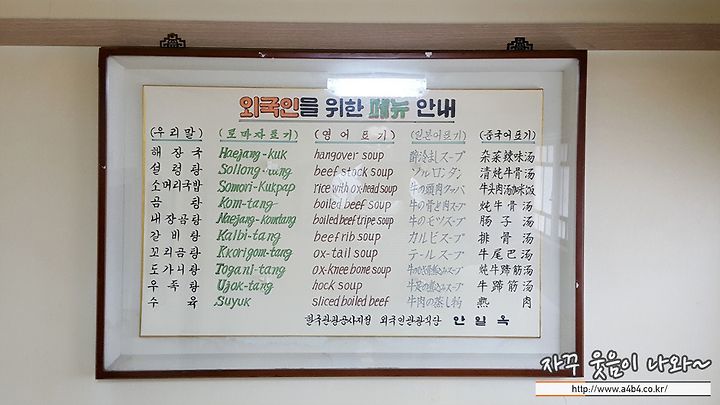 외국인을 위한 메뉴 안내
(우리말) (로마자표기) (영어표기) (일본어표기) (중국어표기)
해장국 Haejang-kuk hangover soup 酔ざましスープ 杂菜辣味汤
설렁탕 Sollong-tang beef stock soup ソルロンタン 清炖牛骨汤
소머리국밥 Somori-Kukpap rice with ox-head soup 牛の頭肉クッパ 牛头肉汤咖味饭
곰탕 Kom-tang boiled beef soup 牛の骨き肉スープ 炖牛骨汤
내장곰탕 Naejang-komtang boiled beef tripe soup 牛のモツスープ 肠子汤
갈비탕 Kalbi-tang beef rib soup カルビスープ 排骨汤
꼬리곰탕 Kkorigom-tang ox-tail soup テールスープ 牛尾巴汤
도가니탕 Togani-tang ox-knee bone soup 炖牛蹄筋汤
우족탕 Ujok-tang hock soup 牛蹄筋汤
수육 Suyuk sliced boiled beef 牛肉の蒸し物 熟肉
한국관광공사지정 외국인관광식당 안일옥
자꾸 웃음이 나와~
http://www.a4b4.co.kr/